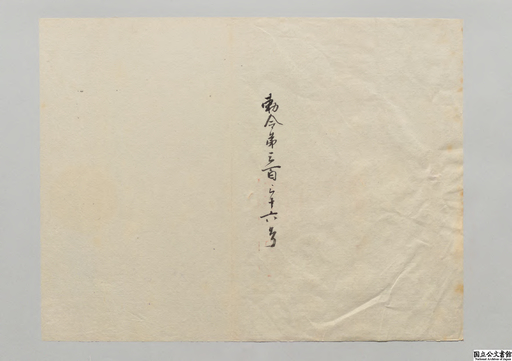 勅令第三百二十六号
国立公文書館
National Archives of Japan